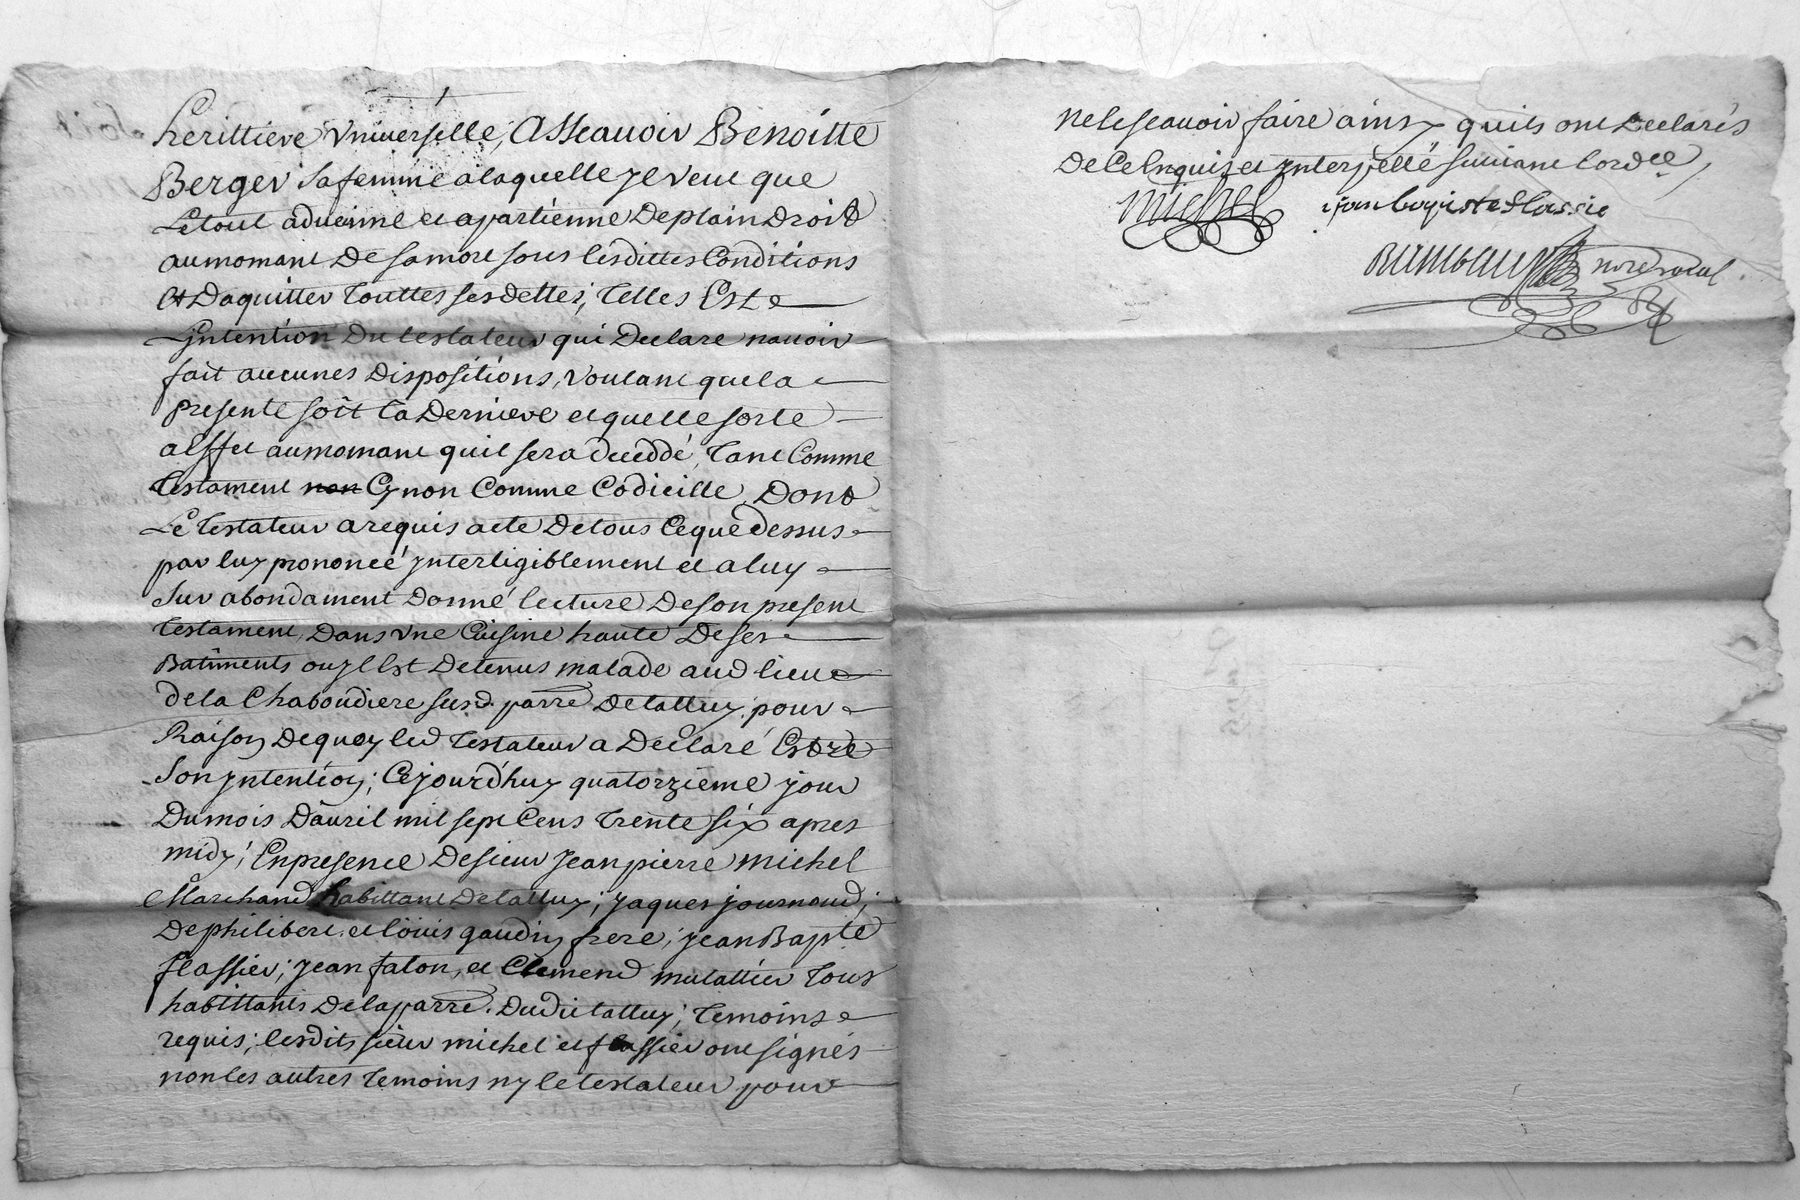 herittiere Vniverselle, Asseauoir Benoitte
Berger sa femme a laquelle je veut que
Le tout aduienne et apartienne De plain Droit
au momant De sa mort sous lesdittes Conditions
et Daquitter Touttes ses dettes; Telles Est
Lyntention Du testateur qui Declare nauoir
fait aucunes Dispositions, voulant que la
presente soit La Derniere et quelle sorte
a Effet au momant quil sera decedé, Tant Comme
Testament non Cynon Comme Codicille, Dont
Le Testateur a requis acte De tous Ce que dessus
par luy prononcé ynterligiblement et a luy
Sur abondament Donné lecture De son present
Testament, Dans vne Cuisine haute De ses
Batiments ou yl Est Detenus malade aud lieu
de la Chaboudiere susd. parre De talluy; pour
Raison Dequoy led Testateur a Declaré Estre
Son yntention; Cejourd'huy quatorzieme jour
Du mois D'auril mil sept Cens Trente six apres
midy; En presence De sieur Jean pierre Michel
Marchand habittant De talluy; Jaques journoud;
De philibert et Louis gaudin frere; Jean Bapte
flassier; Jean faton, et Clemend mulattier Tous
habittants De la parre. Dudit talluy; Temoins
requis; lesdits sieur michel et flassier ont signés
non les autres Temoins ny le testateur pour
ne le scauoir faire ainsy quils ont Declarés
De Ce Enquis et ynterpellé suiuant lordce
Michel jean baptiste flassie
not royal